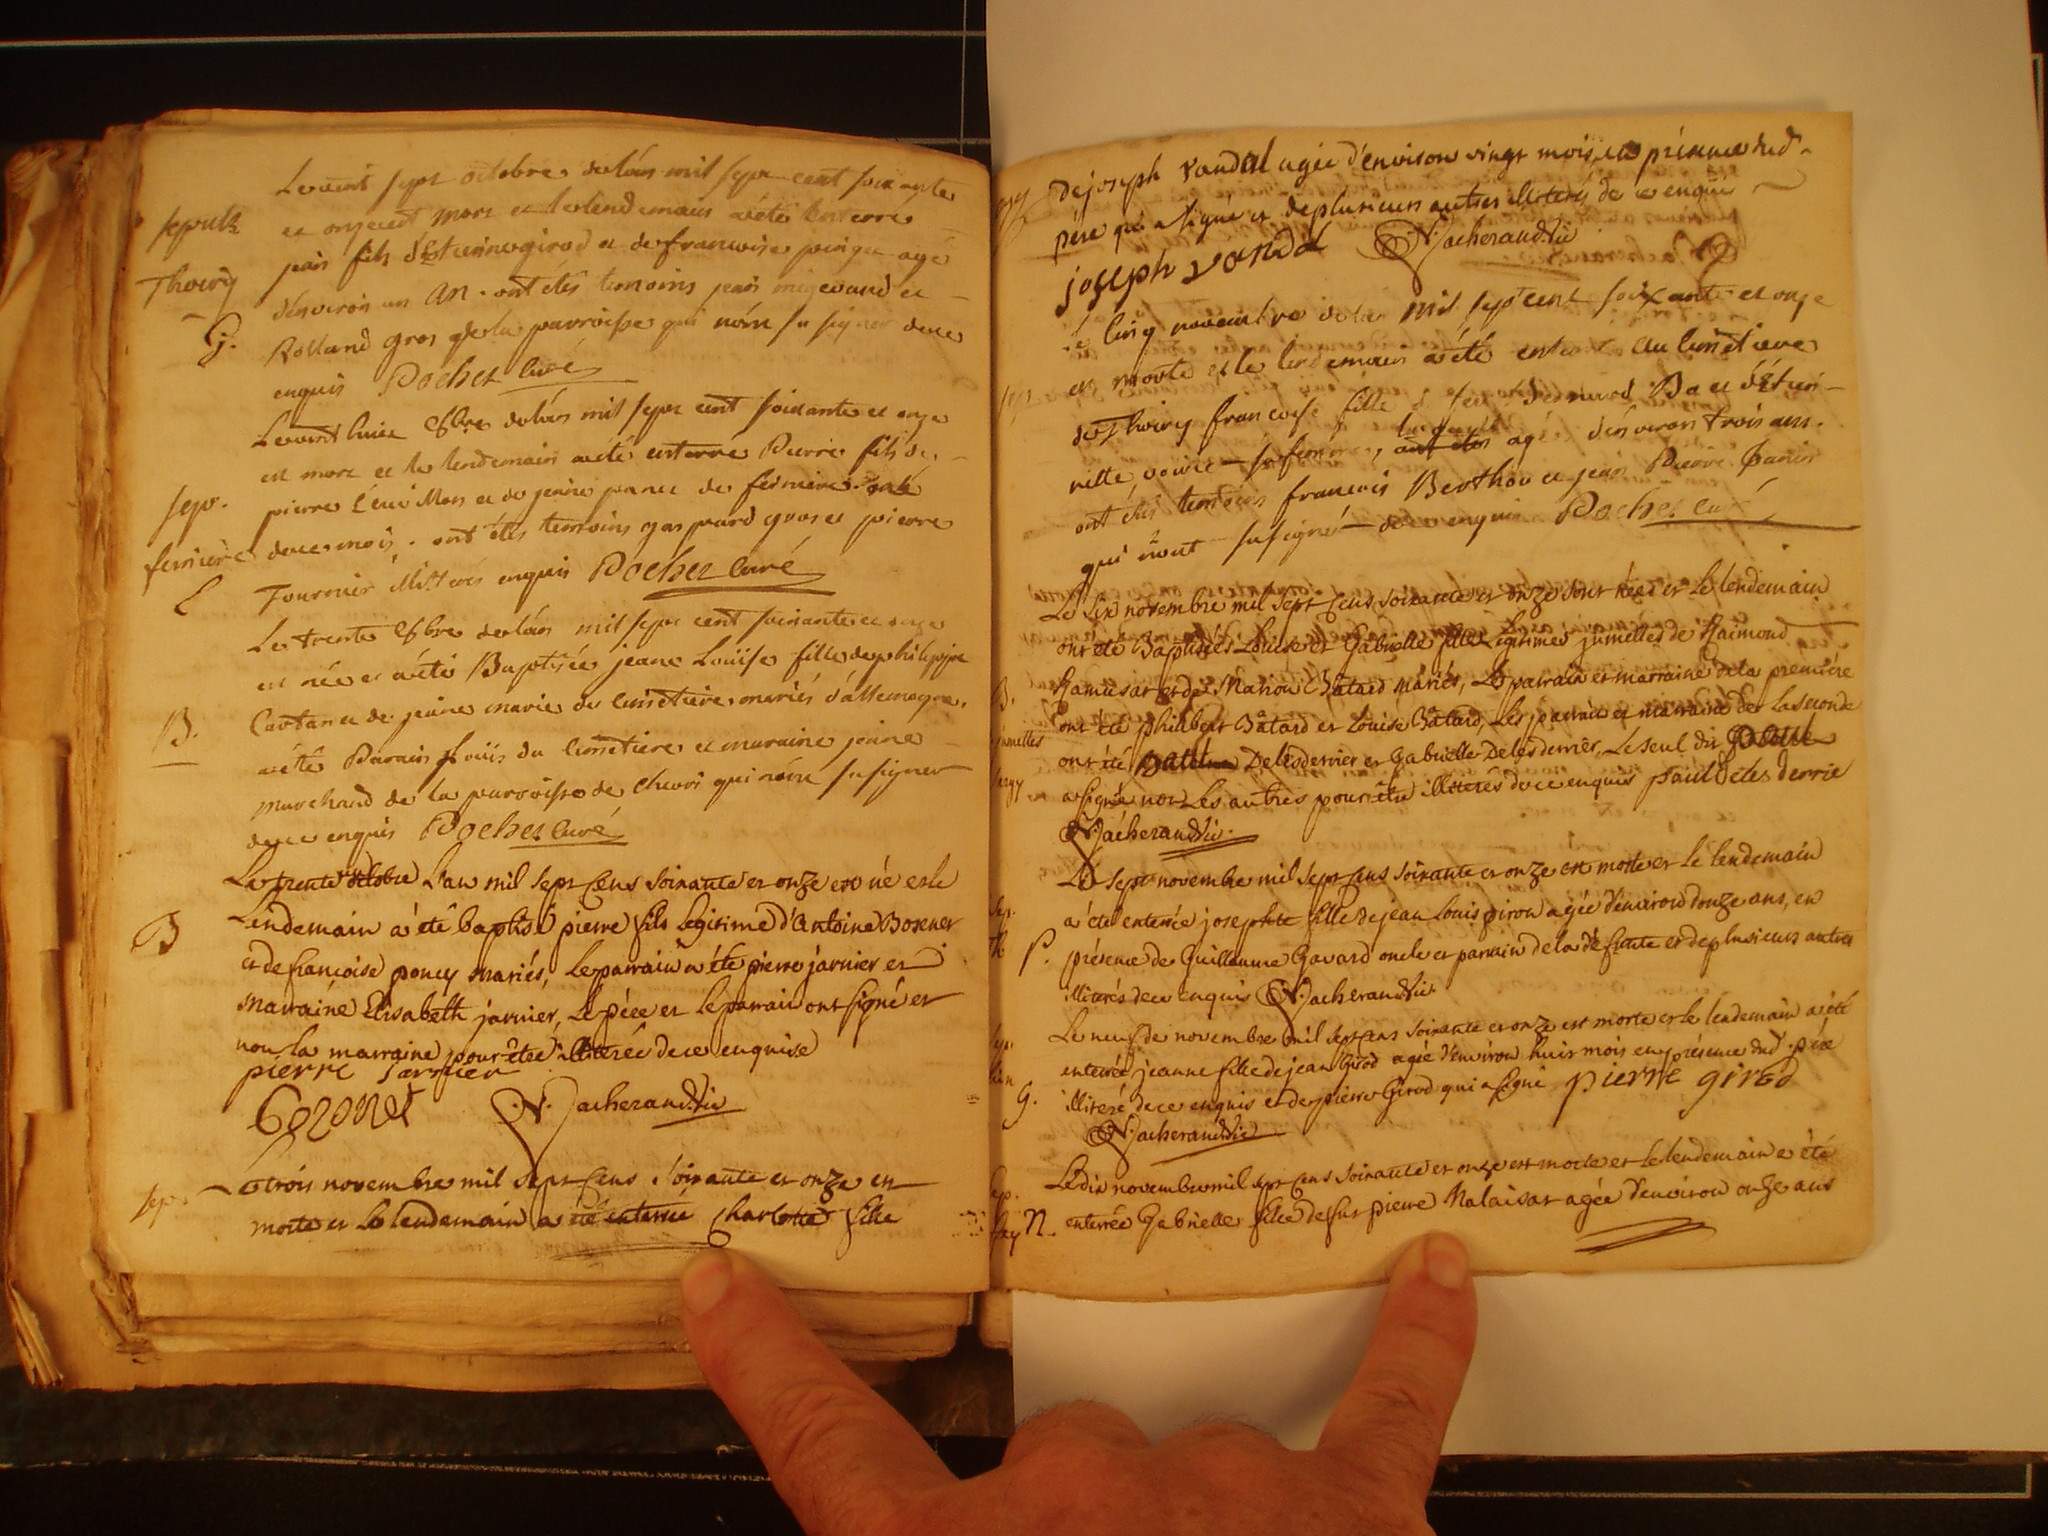 Le vint sept octobre de l'an mil sept cent soixante
sepult. et onze est mort et le lendemain a été enterré
jean fils d'Estienne girod et de francoise
Thoiry d'environ un An. ont étés temoins jean et
G. Rolland gros de la parroisse qui n'ont su signer de ce
enquis Pochet Curé
Le vint huit 8bre de l'an mil sept cent soixante et onze
est mort et le lendemain a été enterré Pierre fils de
sep. pierre et de jeane de ferniere. agé
ferniere douce mois. ont étés temoins gaspard gros et pierre
L Fournier illiterés enquis Pochet Curé
Le trente 8bre de l'an mil sept cent soixante et onze
est née et a été Baptisée jeane Loüise fille de philippe
Cartan et de jeane marie du Cimetiere mariés d'allemogne.
B. a été Parain Loüis du Cimetiere et maraine jeane
marchand de la parroisse de qui n'ont su signer
de ce enquis Pochet Curé
Le trente octobre L'an mil sept Cens soixante et onze est né et le
B Lendemain a été baptisé pierre fils Legitime d'Antoine
et de francoise poncy mariés, Le parrain a été pierre jarnier et
marraine Elisabeth jarnier, Le pére et Le parrain ont signé et
non la marraine pour être illiterée de ce enquise
pierre Jarnier
N. Jacherand Vic
sep. Le trois novembre mil sept Cens soixante et onze est
morte et Le lendemain a été enterrée Charlotte fille
de joseph Vandal agée d'environ vingt mois, en présence dud
pére qui a signé et de plusieurs autres illiterés de ce enquis
joseph vandal N. Jacherand Vic
le Cinq novembre de l'an mil sept cent soixante et onze
est morte et le lendemain a été enterrée au Cimetiere
de Thoiry francoise fille de feu Bernard
sa femme, agée d'environ trois ans.
ont étés temoins francois Berthou et jean Pierre Panis
qui n'ont su signé de ce enquis Pochet Curé
Le Six novembre mil sept Cens soixante et onze sont nées et Le lendemain
ont été Baptisées Louise et Gabrielle filles Legitimes jumelles de Raimond
B. Ramusat et de Marion Bâtard mariés, Le parrain et marraine de la première
jumelles ont été philibert Bâtard et Louise Bâtard, Les parrain et marraine de La seconde
ont été Delesderrier et Gabrielle Delesderrier, Le seul dit
a signé non Les autres pour être illiterés de ce enquis paul deles derrie
N. Jacherand Vic.
Le sept novembre mil sept Cens soixante et onze est morte et Le lendemain
sep. a été enterrée josephte fille de jean Louis piron agée d'environ donze ans, en
P. présence de Guillaume Gavard oncle et parrain de la défunte et de plusieurs autres
illiterés de ce enquis N. Jacherand Vic
Le neuf de novembre mil sept Cens soixante et onze est morte et le lendemain a été
enterrée jeanne fille de jean Girod agée d'environ huit mois en présence dud. pére
G. illiteré de ce enquis et de pierre Girod qui a signé pierre girod
N. Jacherand Vic
Le dix novembre mil sept Cens soixante et onze est morte et le lendemain a été
N. enterrée Gabrielle fille de fut pierre Nalaisat agée d'environ onze ans